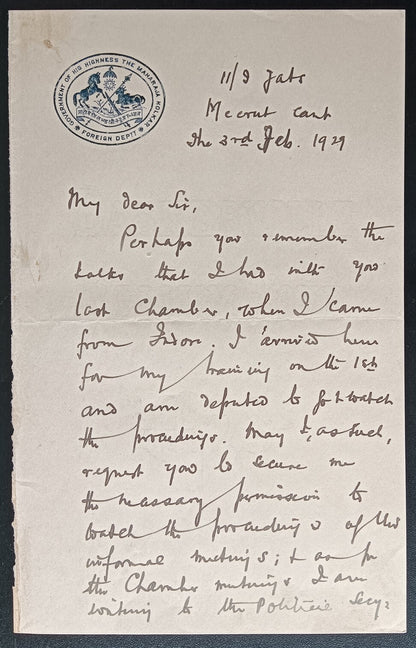 GOVERNMENT OF HIS HIGHNESS THE MAHARAJA HOLKAR
FOREIGN DEPTT
11/9 Jats
Meerut Cant
The 3rd Feb. 1929
My dear Sir,
Perhaps you remember the
talks that I had with you
last Chamber, when I came
from Indore. I arrived here
for my training on the 1st
and am deputed to go & watch
the proceedings. May I, as such,
request you to secure me
the necessary permission to
watch the proceedings of the
informal meetings; & as for
the Chamber meetings I am
writing to the Political Secy: